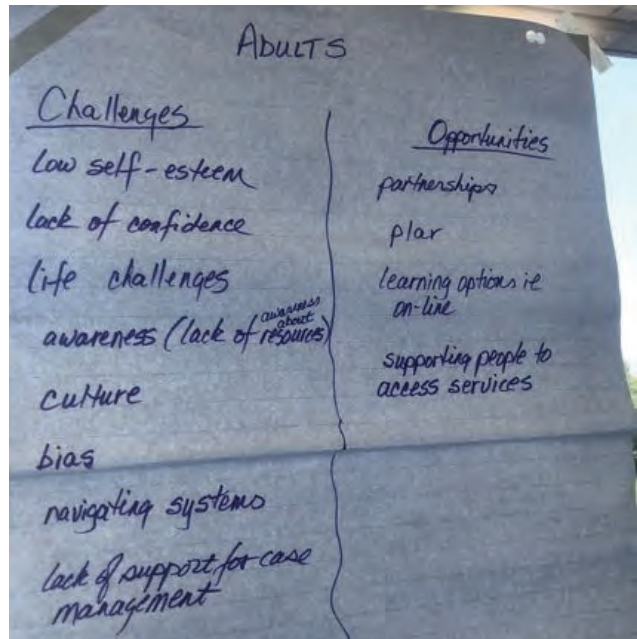 ADULTS
Challenges
low self-esteem
lack of confidence
life challenges
awareness (lack of awareness about resources)
culture
bias
navigating systems
lack of support for case
management
Opportunities
partnerships
plar
learning options ie
on-line
supporting people to
access services